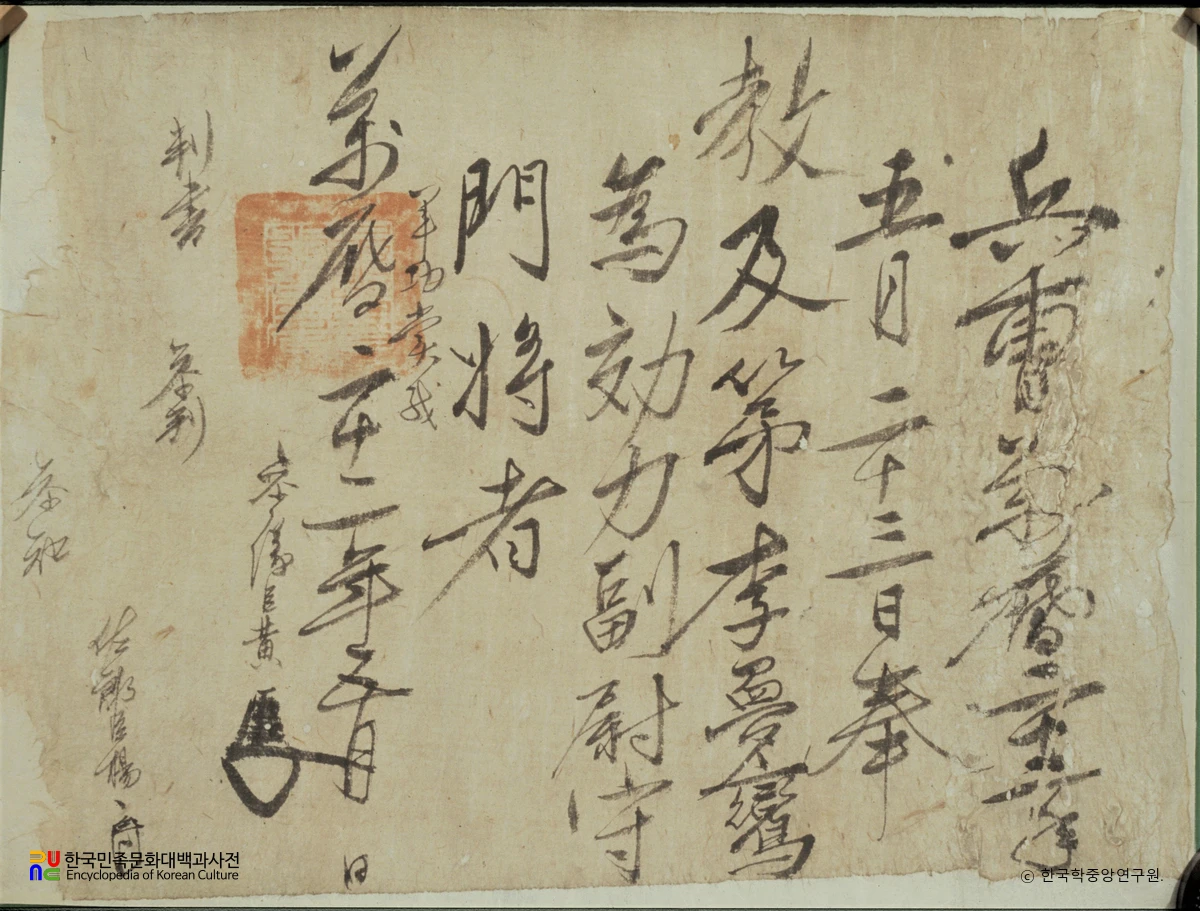 兵曹萬曆二十二年
五月二十三日奉
教及第李夢鸞
為効力副尉守
門將者
軍功賞
萬曆二十二年五月 日
參議臣黃
判書
參判
參知
佐郎臣楊
한국민족문화대백과사전
Encyclopedia of Korean Culture
ⓒ 한국학중앙연구원.